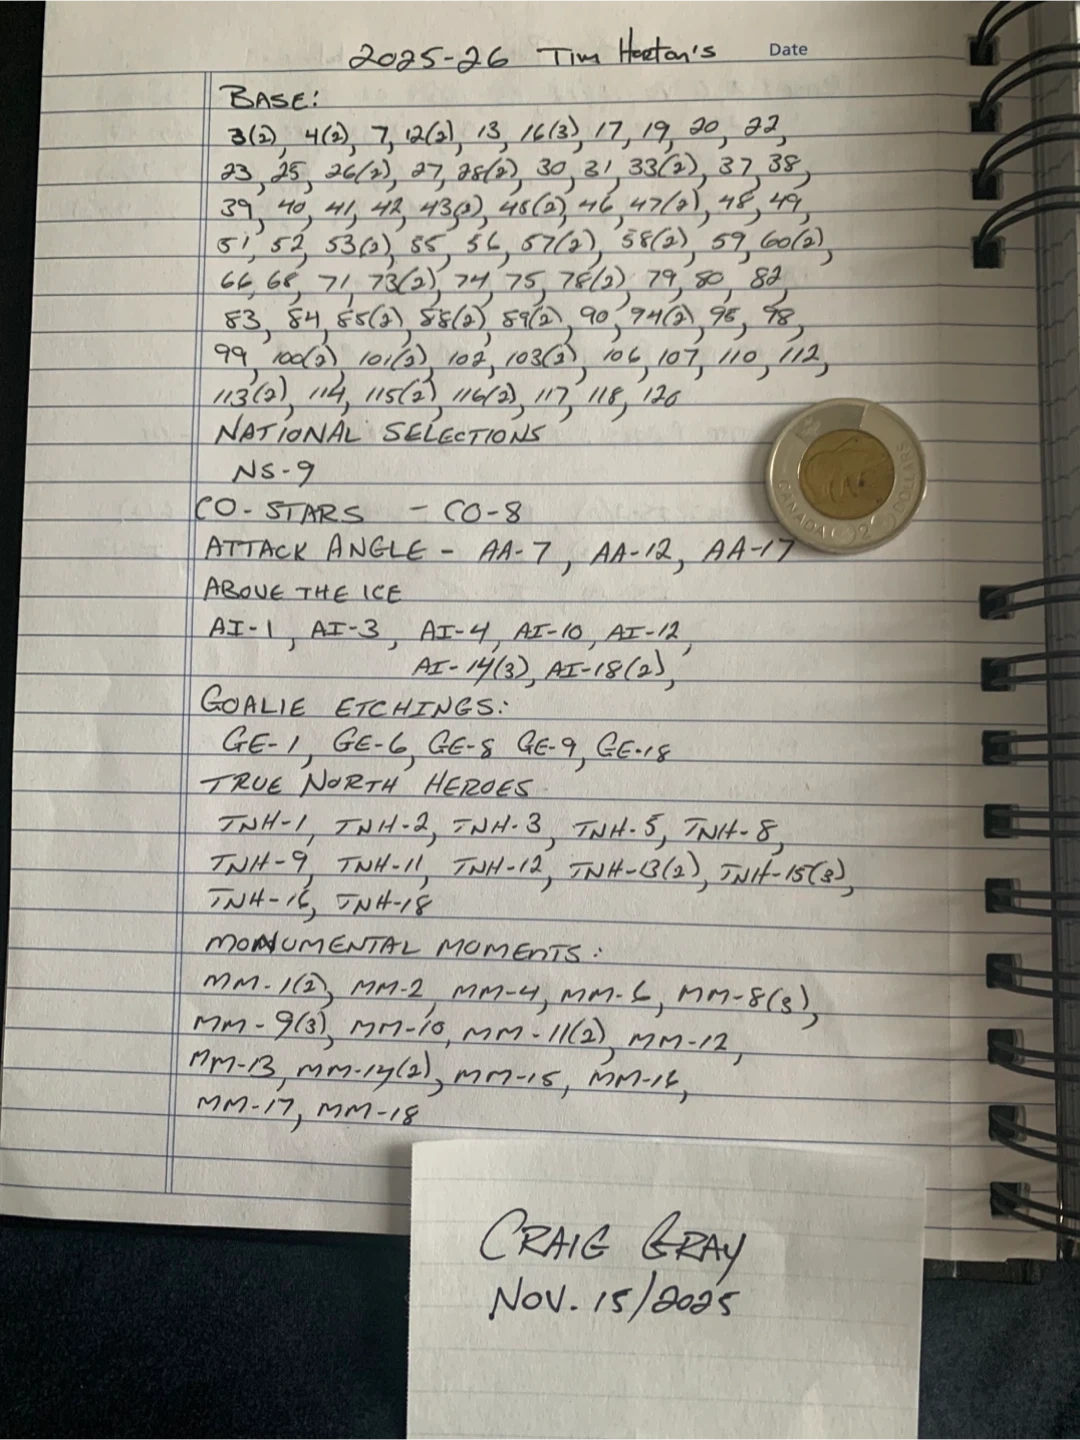 2025-26 Tim Horton's Date
BASE:
3(2), 4(2), 7, 12(2), 13, 16(3), 17, 19, 20, 22,
23, 25, 26(2), 27, 28(2), 30, 31, 33(2), 37, 38,
39, 40, 41, 42, 43(2), 45(2), 46, 47(2), 48, 49,
51, 52, 53(2), 55, 56, 57(2), 58(2), 59, 60(2),
66, 68, 71, 73(2), 74, 75, 78(2), 79, 80, 82,
83, 84, 85(2), 88(2), 89(2), 90, 94(2), 95, 98,
99, 100(2), 101(2), 102, 103(2), 106, 107, 110, 112,
113(2), 114, 115(2), 116(2), 117, 118, 120
NATIONAL SELECTIONS
NS-9
CO-STARS - CO-8
ATTACK ANGLE - AA-7, AA-12, AA-17
ABOVE THE ICE
AI-1, AI-3, AI-4, AI-10, AI-12,
AI-14(3), AI-18(2),
GOALIE ETCHINGS:
GE-1, GE-6, GE-8 GE-9, GE-18
TRUE NORTH HEROES
TNH-1, TNH-2, TNH-3, TNH-5, TNH-8,
TNH-9, TNH-11, TNH-12, TNH-13(2), TNH-15(3),
TNH-16, TNH-18
MONUMENTAL MOMENTS:
MM-1(2), MM-2, MM-4, MM-6, MM-8(3),
MM-9(3), MM-10, MM-11(2), MM-12,
MM-13, MM-14(2), MM-15, MM-16,
MM-17, MM-18
CANADA 2 DOLLARS
CRAIG GRAY
NOV. 15/2025